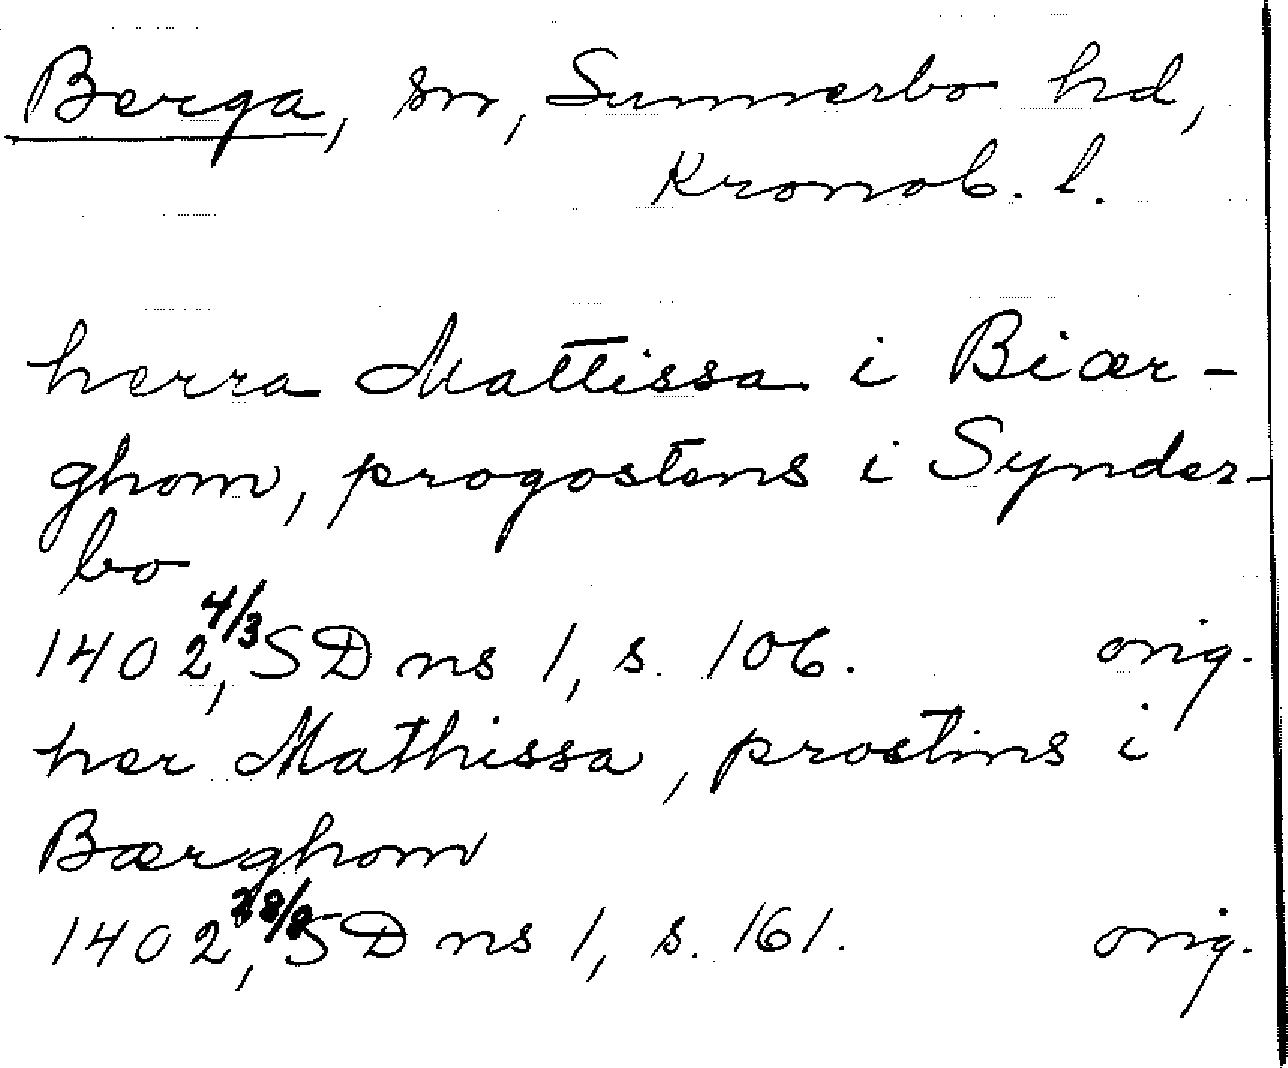 Berga, sn, Sunnerbo hd,
Kronob. l.
herra Mattissa i Biær-
ghom, progostens i Synder-
bo
1402 4/3, SD ns 1, s. 106. orig.
her Mathissa, prostins i
Bærghom
1402 28/8, SD ns 1, s. 161. orig.